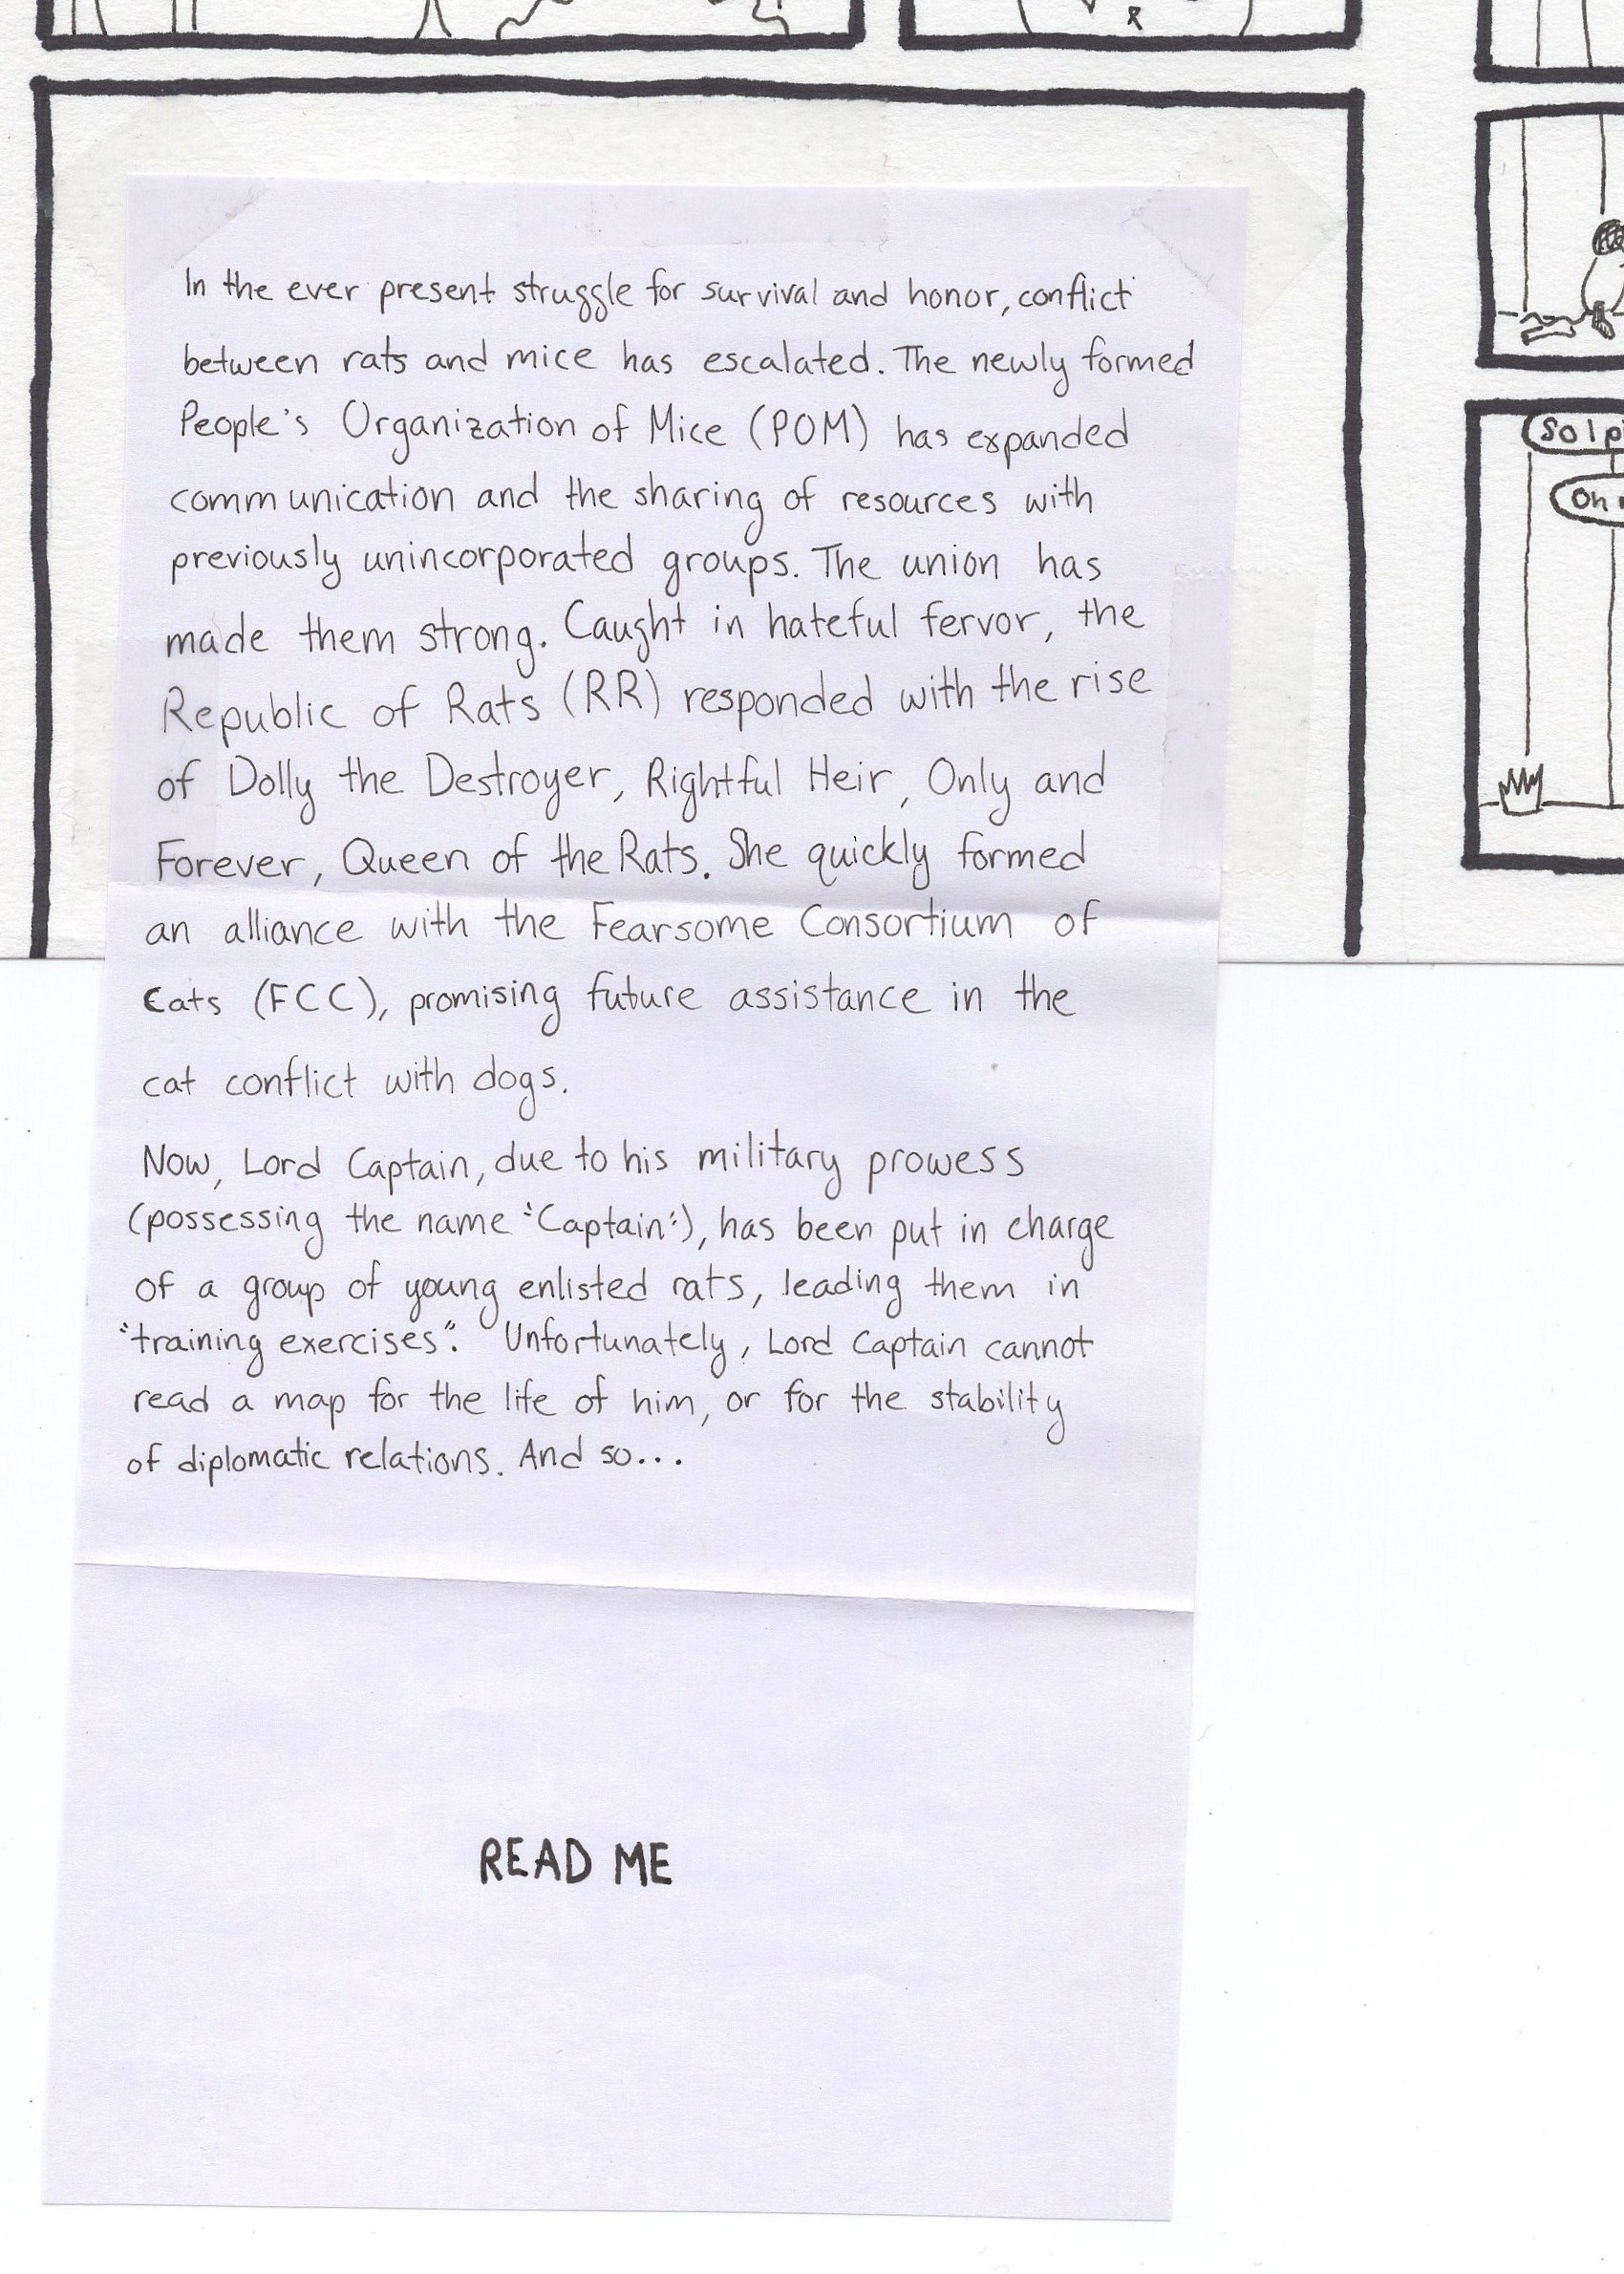 In the ever present struggle for survival and honor, conflict
between rats and mice has escalated. The newly formed
People's Organization of Mice (POM) has expanded
communication and the sharing of resources with
previously unincorporated groups. The union has
made them strong. Caught in hateful fervor, the
Republic of Rats (RR) responded with the rise
of Dolly the Destroyer, Rightful Heir, Only and
Forever, Queen of the Rats. She quickly formed
an alliance with the Fearsome Consortium of
Cats (FCC), promising future assistance in the
cat conflict with dogs.
Now, Lord Captain, due to his military prowess
(possessing the name "Captain"), has been put in charge
of a group of young enlisted rats, leading them in
"training exercises". Unfortunately, Lord Captain cannot
read a map for the life of him, or for the stability
of diplomatic relations. And so...
READ ME
So I
Oh